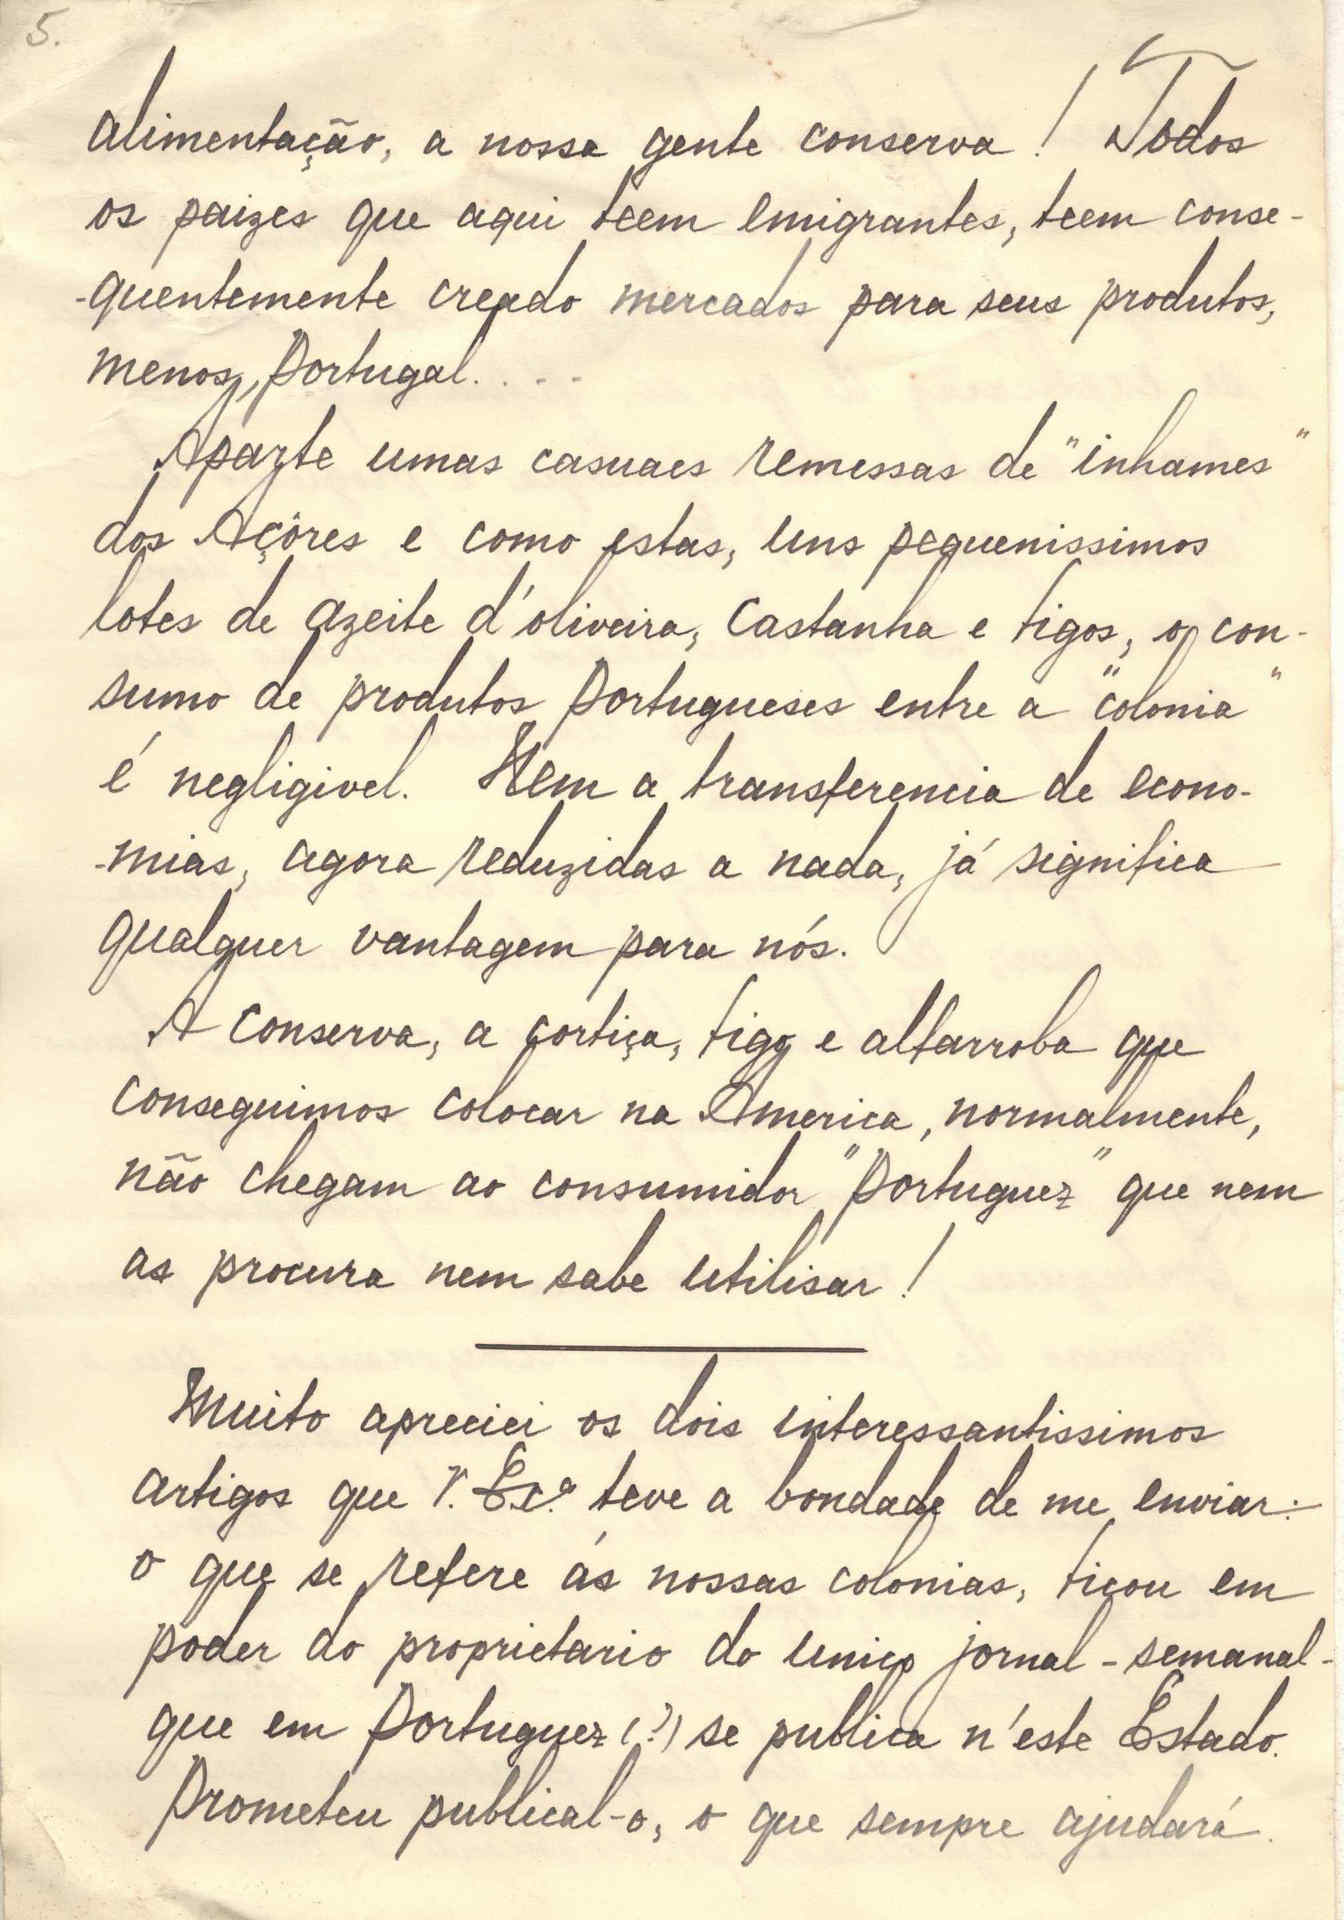 5.
alimentação, a nossa gente conserva! Todos
os paizes que aqui teem emigrantes, teem conse-
-quentemente creado mercados para seus produtos,
menos, Portugal....
Aparte umas casuaes remessas de "inhames"
dos Açôres e como estas, uns pequenissimos
lotes de azeite d'oliveira, castanha e figos, o con-
sumo de produtos Portugueses entre a "colonia"
é negligivel. Nem a transferencia de econo-
-mias, agora reduzidas a nada, já significa
qualquer vantagem para nós.
A conserva, a cortiça, figo e alfarroba que
conseguimos colocar na America, normalmente,
não chegam ao consumidor "Portuguez" que nem
as procura nem sabe utilisar!
Muito apreciei os dois interessantissimos
artigos que V. Exª teve a bondade de me enviar:
o que se refere ás nossas colonias, ficou em
poder do proprietario do unico jornal - semanal -
que em Portuguez (?) se publica n'este Estado.
Prometeu publical-o, o que sempre ajudará.